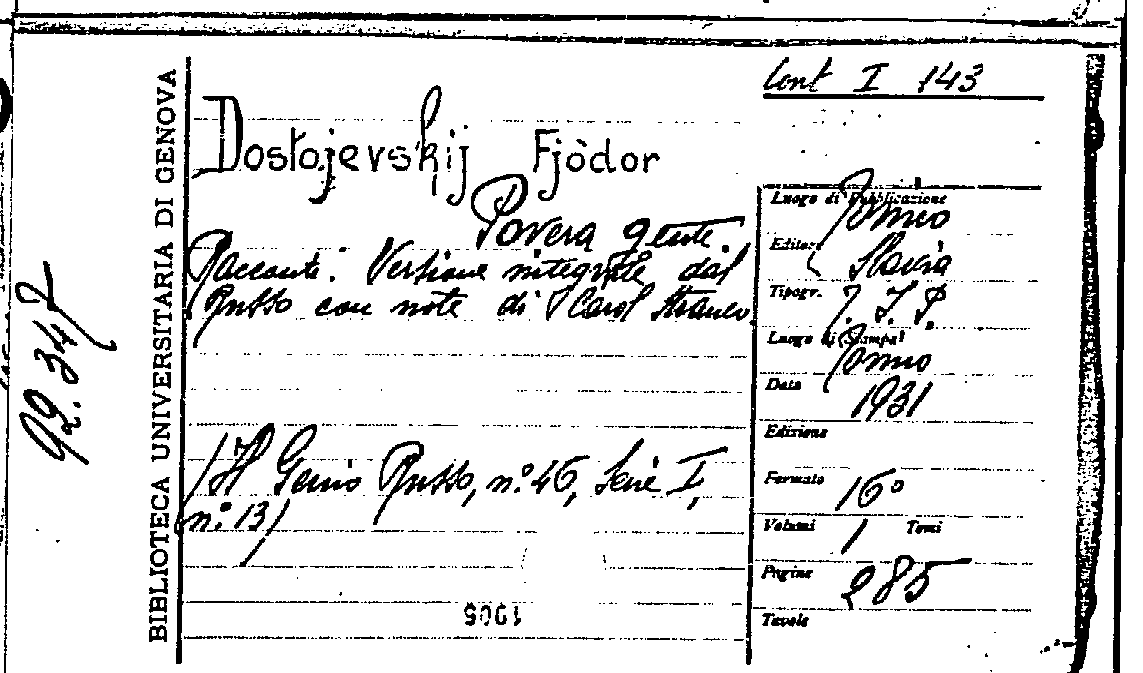 Cont I 143
BIBLIOTECA UNIVERSITARIA DI GENOVA
92.347
Dostojevskij Fjòdor
Povera gente.
Racconti. Versione integrale dal
Russo con note di Carol Straneo
(Il Genio Russo, n.° 46, Serie I,
n.° 13)
1905
Luogo di Pubblicazione Torino
Editore Slavia
Tipogr. J. I. P.
Luogo di Stampa Torino
Data 1931
Edizione
Formato 16°
Volumi 1 Tomi
Pagine 285
Tavole